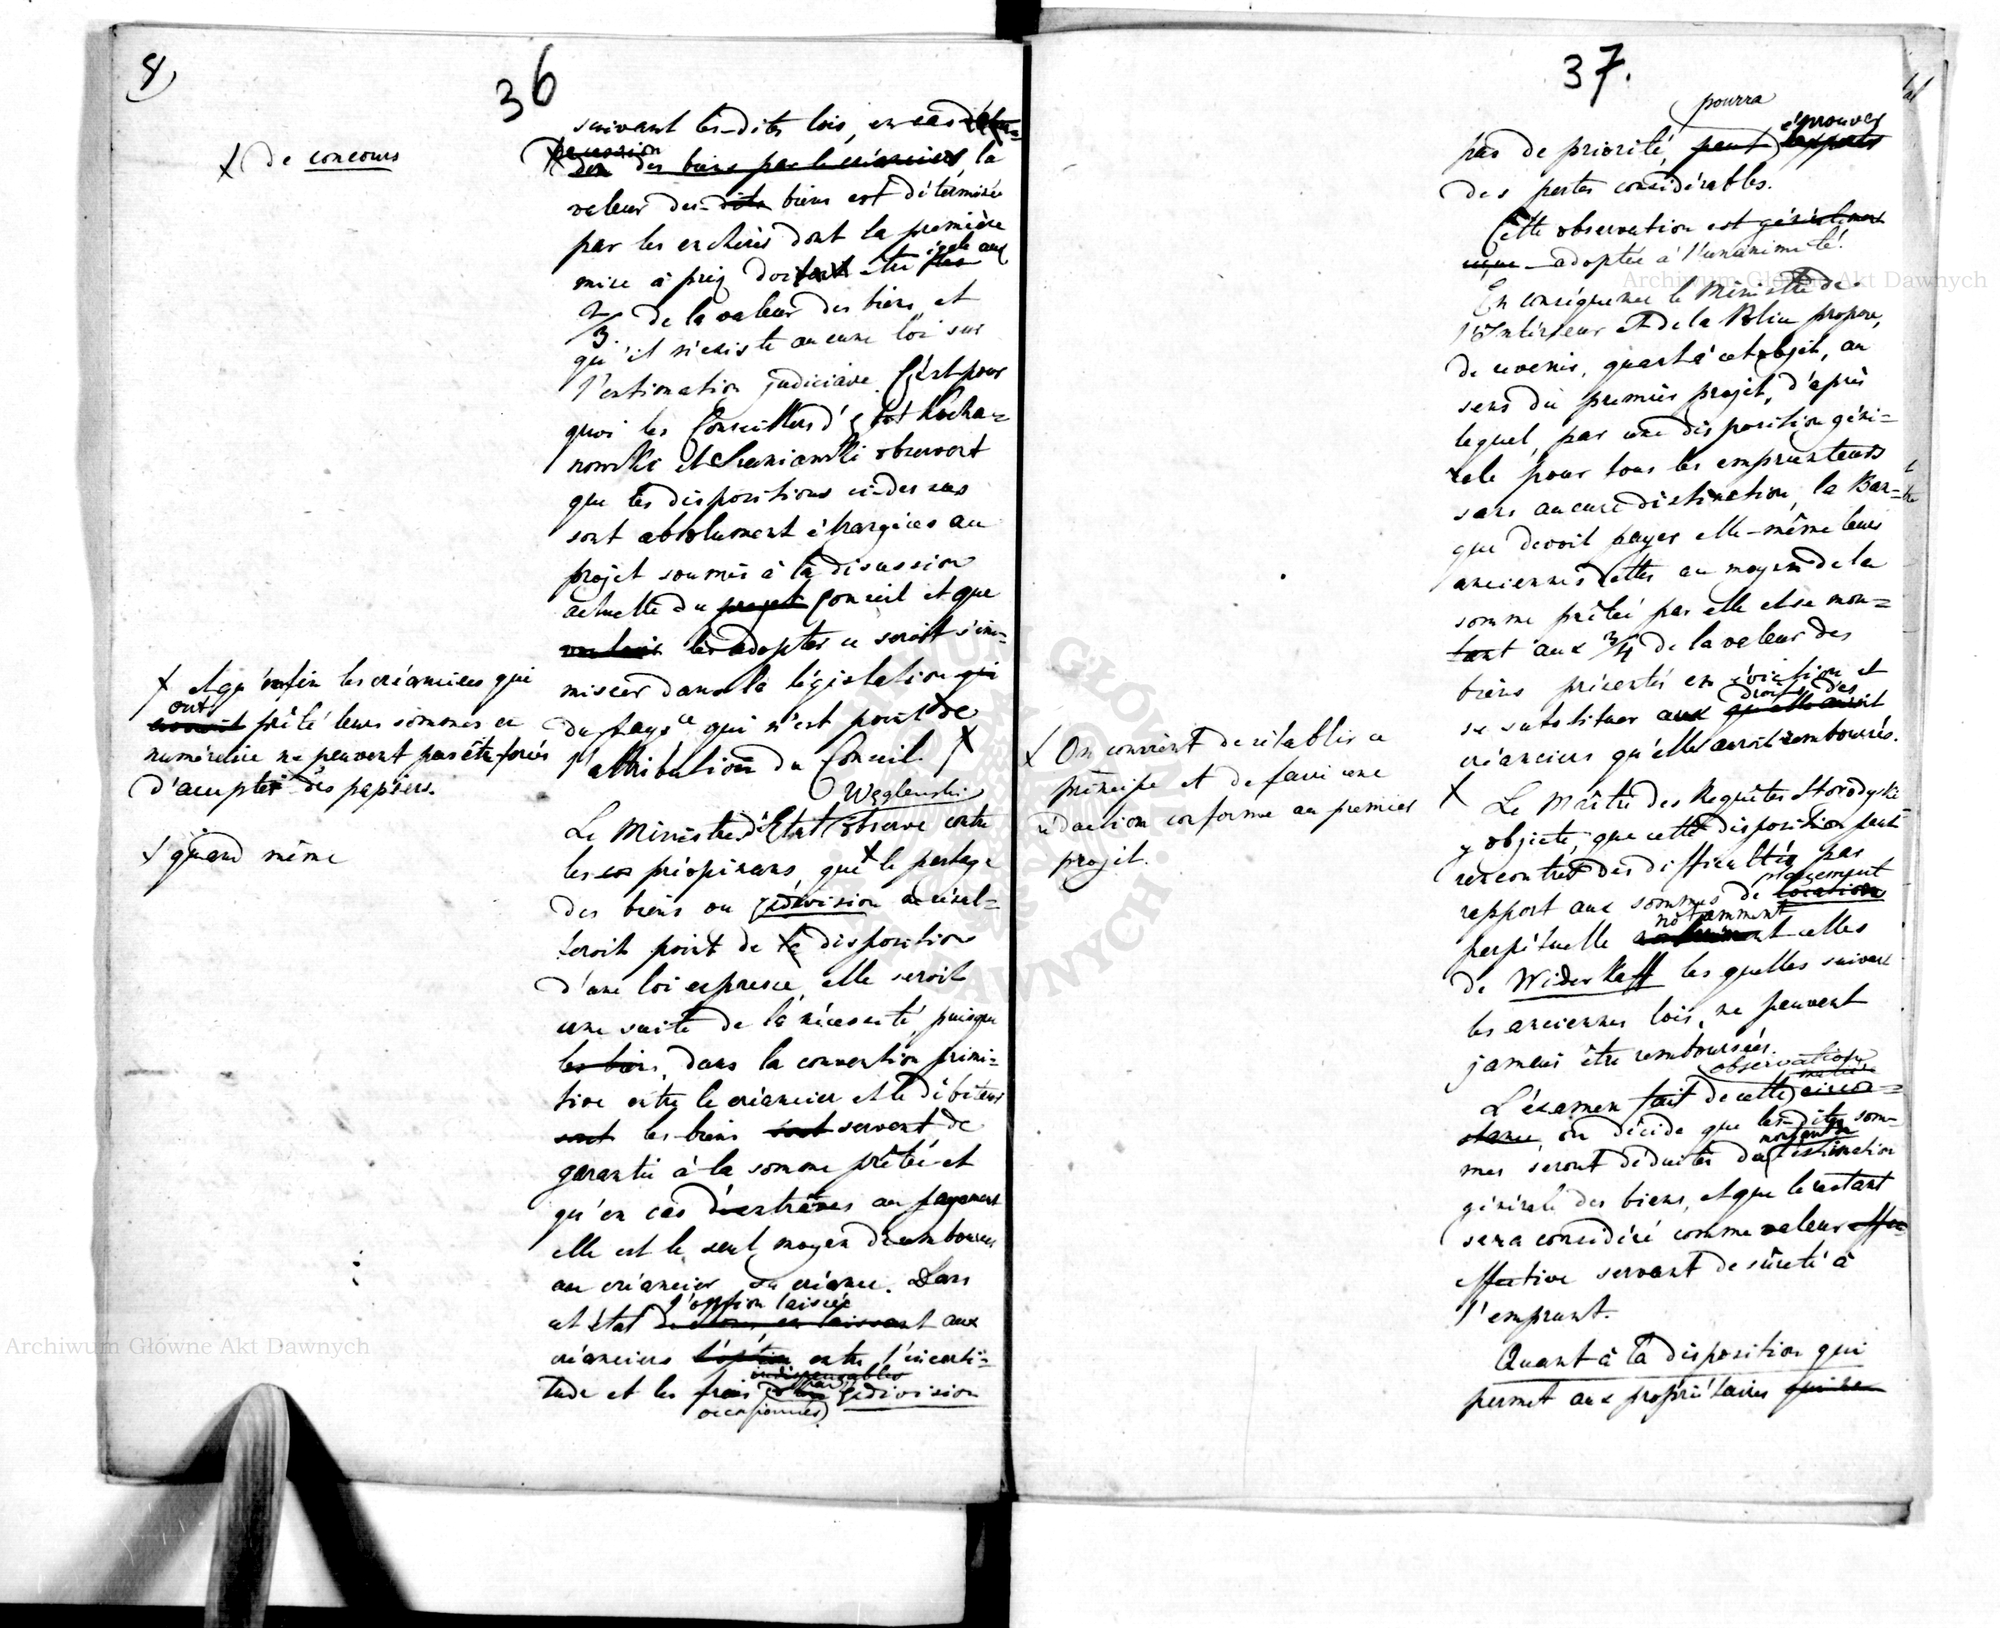 8)
36
suivant les-dites lois, en cas
X de concours
des biens par le créancier la
valeur des-dits biens est déterminée
par les enchères dont la première
mise à prix doit être égale aux
2/3 de la valeur des biens, et
qu'il n'existe aucune loi sur
l'estimation judiciaire. C'est pour
quoi les Conseillers d'État Kocha=
nowski et observent
que les dispositions ci-dessus
sont absolument étrangères au
projet soumis à la discussion
actuelle du projet Conseil et que
vouloir les adopter ce seroit s'im=
miscer dans la législation qui
du pays ce qui n'est point de
l'attribution du Conseil. X
X et qu'enfin les créanciers qui
ont
avoient prêté leurs sommes en
numéraire ne peuvent pas être forcés
d'accepter des papiers.
Węglenski
Le Ministre d'Etat observe contre
X quand même
les préopinans, que X le partage
des biens ou exdivision ne résul=
teroit point de la disposition
d'une loi expresse, elle seroit
une suite de la nécessité, puisque
les biens, dans la convention primi=
tive entre le créancier et le débiteur
sont les biens sont servent de
garantie à la somme prêtée et
qu'en cas d'entraves au payement
elle est le seul moyen de rembourser
au créancier sa créance. Dans
l'option laissée
cet état de choses en laissant aux
créanciers l'option entre l'incerti=
indispensables
tude et les frais par exdivision
occasionnés
37.
pourra
éprouver
pas de priorité, peut
des pertes considérables.
Cette observation est générale
ment adoptée à l'unanimité.
En conséquence le Ministre de
l'Intérieur et de la Police propose,
de revenir, quant à cet objet, au
sens du premier projet, d'après
lequel, par une disposition géné=
rale pour tous les emprunteurs
sans aucune distinction, la Ban=
que devoit payer elle-même leurs
anciennes dettes au moyen de la
somme prêtée par elle et se mon=
tant aux 3/4 de la valeur des
biens présentés en éviction et
droits des
se substituer aux qu'elle auroit
créanciers qu'elle auroit remboursés.
X
X On convient de rétablir ce
principe et de faire une
rédaction conforme au premier
projet.
Le Maître des Requêtes Horodyski
y objecte, que cette disposition peut
rencontrer des difficultés par
placement
rapport aux sommes de location
notamment
perpétuelle celles
de Widerkaff les quelles suivant
les anciennes lois, ne peuvent
jamais être remboursées.
observation
matière
L'éxamen fait de cette circon=
stance on décide que les-dites som=
montant
mes seront déduites de l'estimation
générale des biens, et que le restant
sera considéré comme valeur effec
effective servant de sûreté à
l'emprunt.
Quant à la disposition qui
permet aux propriétaires